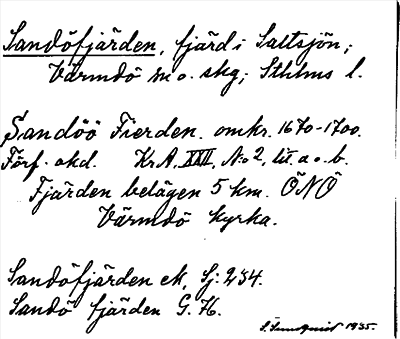 Sandöfjärden, fjärd i Saltsjön;
Värmdö sn o. skg; Sthlms l.
Sandöö Fierden. omkr. 1670-1700.
Förf. okd. KrA, XXII, N:o 2, lit. a o. b.
Fjärden belägen 5 km. ÖNÖ
Värmdö kyrka.
Sandöfjärden ek, Sj: 234.
Sandö fjärden G. K.
1935.